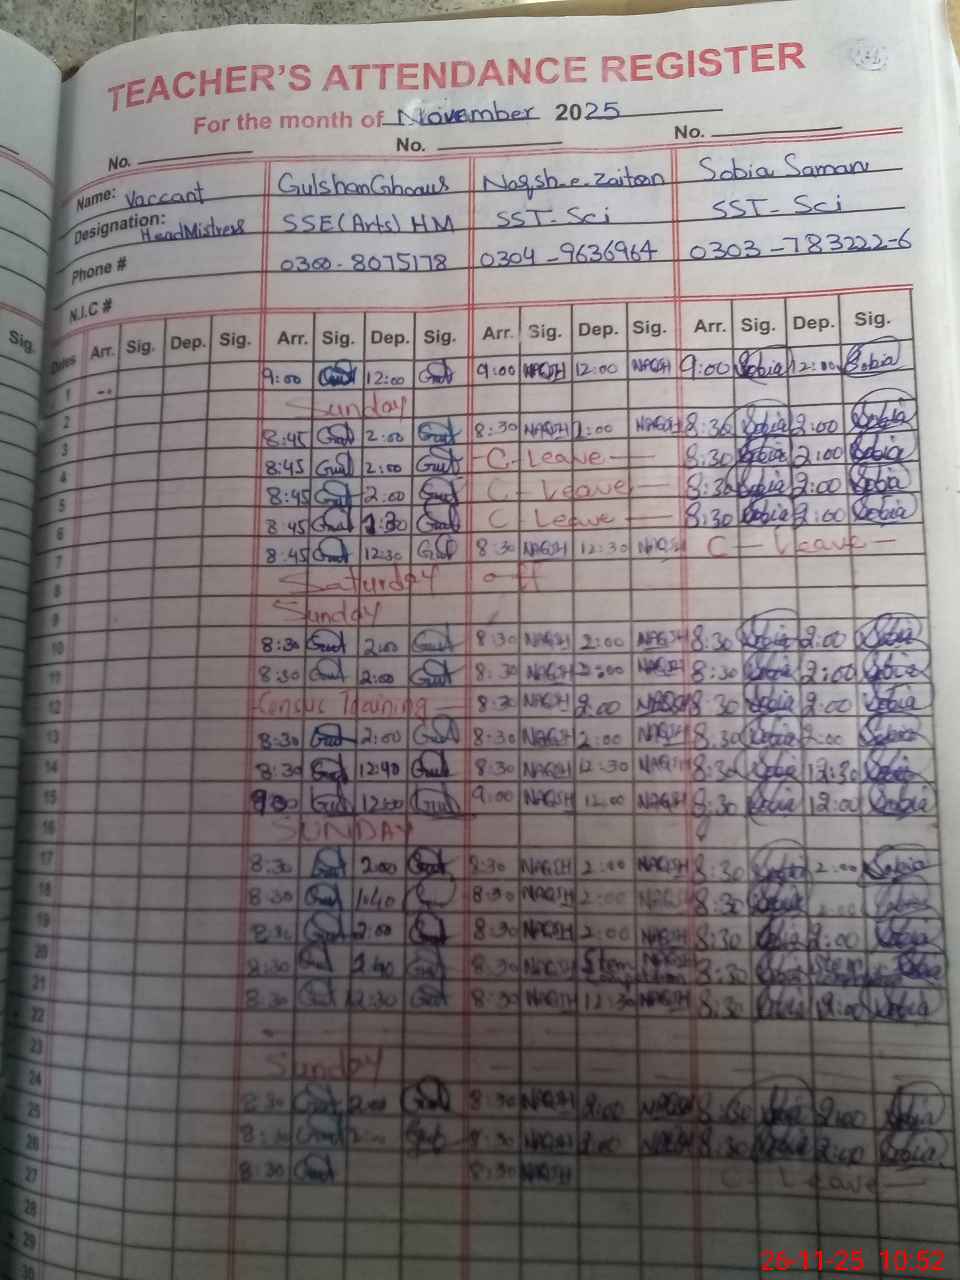 TEACHER'S ATTENDANCE REGISTER
For the month of November 2025
No. No. No.
Name: Vaccant GulshanGhous Naqsh-e-Zaiton Sobia Saman
Designation: HeadMistress SSE(Arts) HM SST-Sci SST-Sci
Phone # 0300-8075178 0304-9636964 0303-783222-6
N.I.C #
Sig. Dates Arr. Sig. Dep. Sig. Arr. Sig. Dep. Sig. Arr. Sig. Dep. Sig. Arr. Sig. Dep. Sig.
1 -- 9:00 12:00 9:00 NAQSH 12:00 NAQSH 9:00 Sobia 12:00 Sobia
2 Sunday
3 8:45 Gul 2:00 Gul 8:30 NAQSH 2:00 NAQSH 8:30 Sobia 2:00 Sobia
4 8:45 Gul 2:00 Gul C-Leave 8:30 Sobia 2:00 Sobia
5 8:45 Gul 2:00 Gul C-Leave 8:30 Sobia 2:00 Sobia
6 8:45 Gul Gul C-Leave 8:30 Sobia 2:00 Sobia
7 8:45 Gul 12:30 Gul 8:30 NAQSH 12:30 NAQSH C-Leave
8 Saturday off
9 Sunday
10 8:30 Gul 2:00 Gul 8:30 NAQSH 2:00 NAQSH 8:30 Sobia 2:00 Sobia
11 8:30 Gul 2:00 Gul 8:30 NAQSH 2:00 NAQSH 8:30 Sobia 2:00 Sobia
12 Training 8:30 NAQSH 2:00 NAQSH 8:30 Sobia 2:00 Sobia
13 8:30 Gul 2:00 Gul 8:30 NAQSH 2:00 NAQSH 8:30 Sobia 2:00 Sobia
14 8:30 Gul 12:40 Gul 8:30 NAQSH 12:30 NAQSH 8:30 Sobia 12:30 Sobia
15 9:00 Gul 12:00 Gul 9:00 NAQSH 12:00 NAQSH 8:30 Sobia 12:00 Sobia
16 SUNDAY
17 8:30 Gul 2:00 Gul 8:30 NAQSH 2:00 NAQSH 8:30 Sobia 2:00 Sobia
18 8:30 Gul 1:40 8:30 NAQSH 2:00 NAQSH 8:30 Sobia 2:00 Sobia
19 8:30 Gul 2:00 Gul 8:30 NAQSH 2:00 NAQSH 8:30 Sobia 2:00 Sobia
20 8:30 Gul Gul 8:30 NAQSH Stem NAQSH 8:30 Sobia Stem Sobia
21 8:30 Gul 12:30 Gul 8:30 NAQSH 12:30 NAQSH 8:30 Sobia Sobia
22
23 Sunday
24 8:30 Gul 2:00 Gul 8:30 NAQSH 2:00 NAQSH 8:30 Sobia 2:00 Sobia
25 8:30 Gul 2:00 Gul 8:30 NAQSH 2:00 NAQSH 8:30 Sobia 2:00 Sobia
26 8:30 Gul 8:30 NAQSH C-Leave
27
28
29
30
26-11-25 10:52